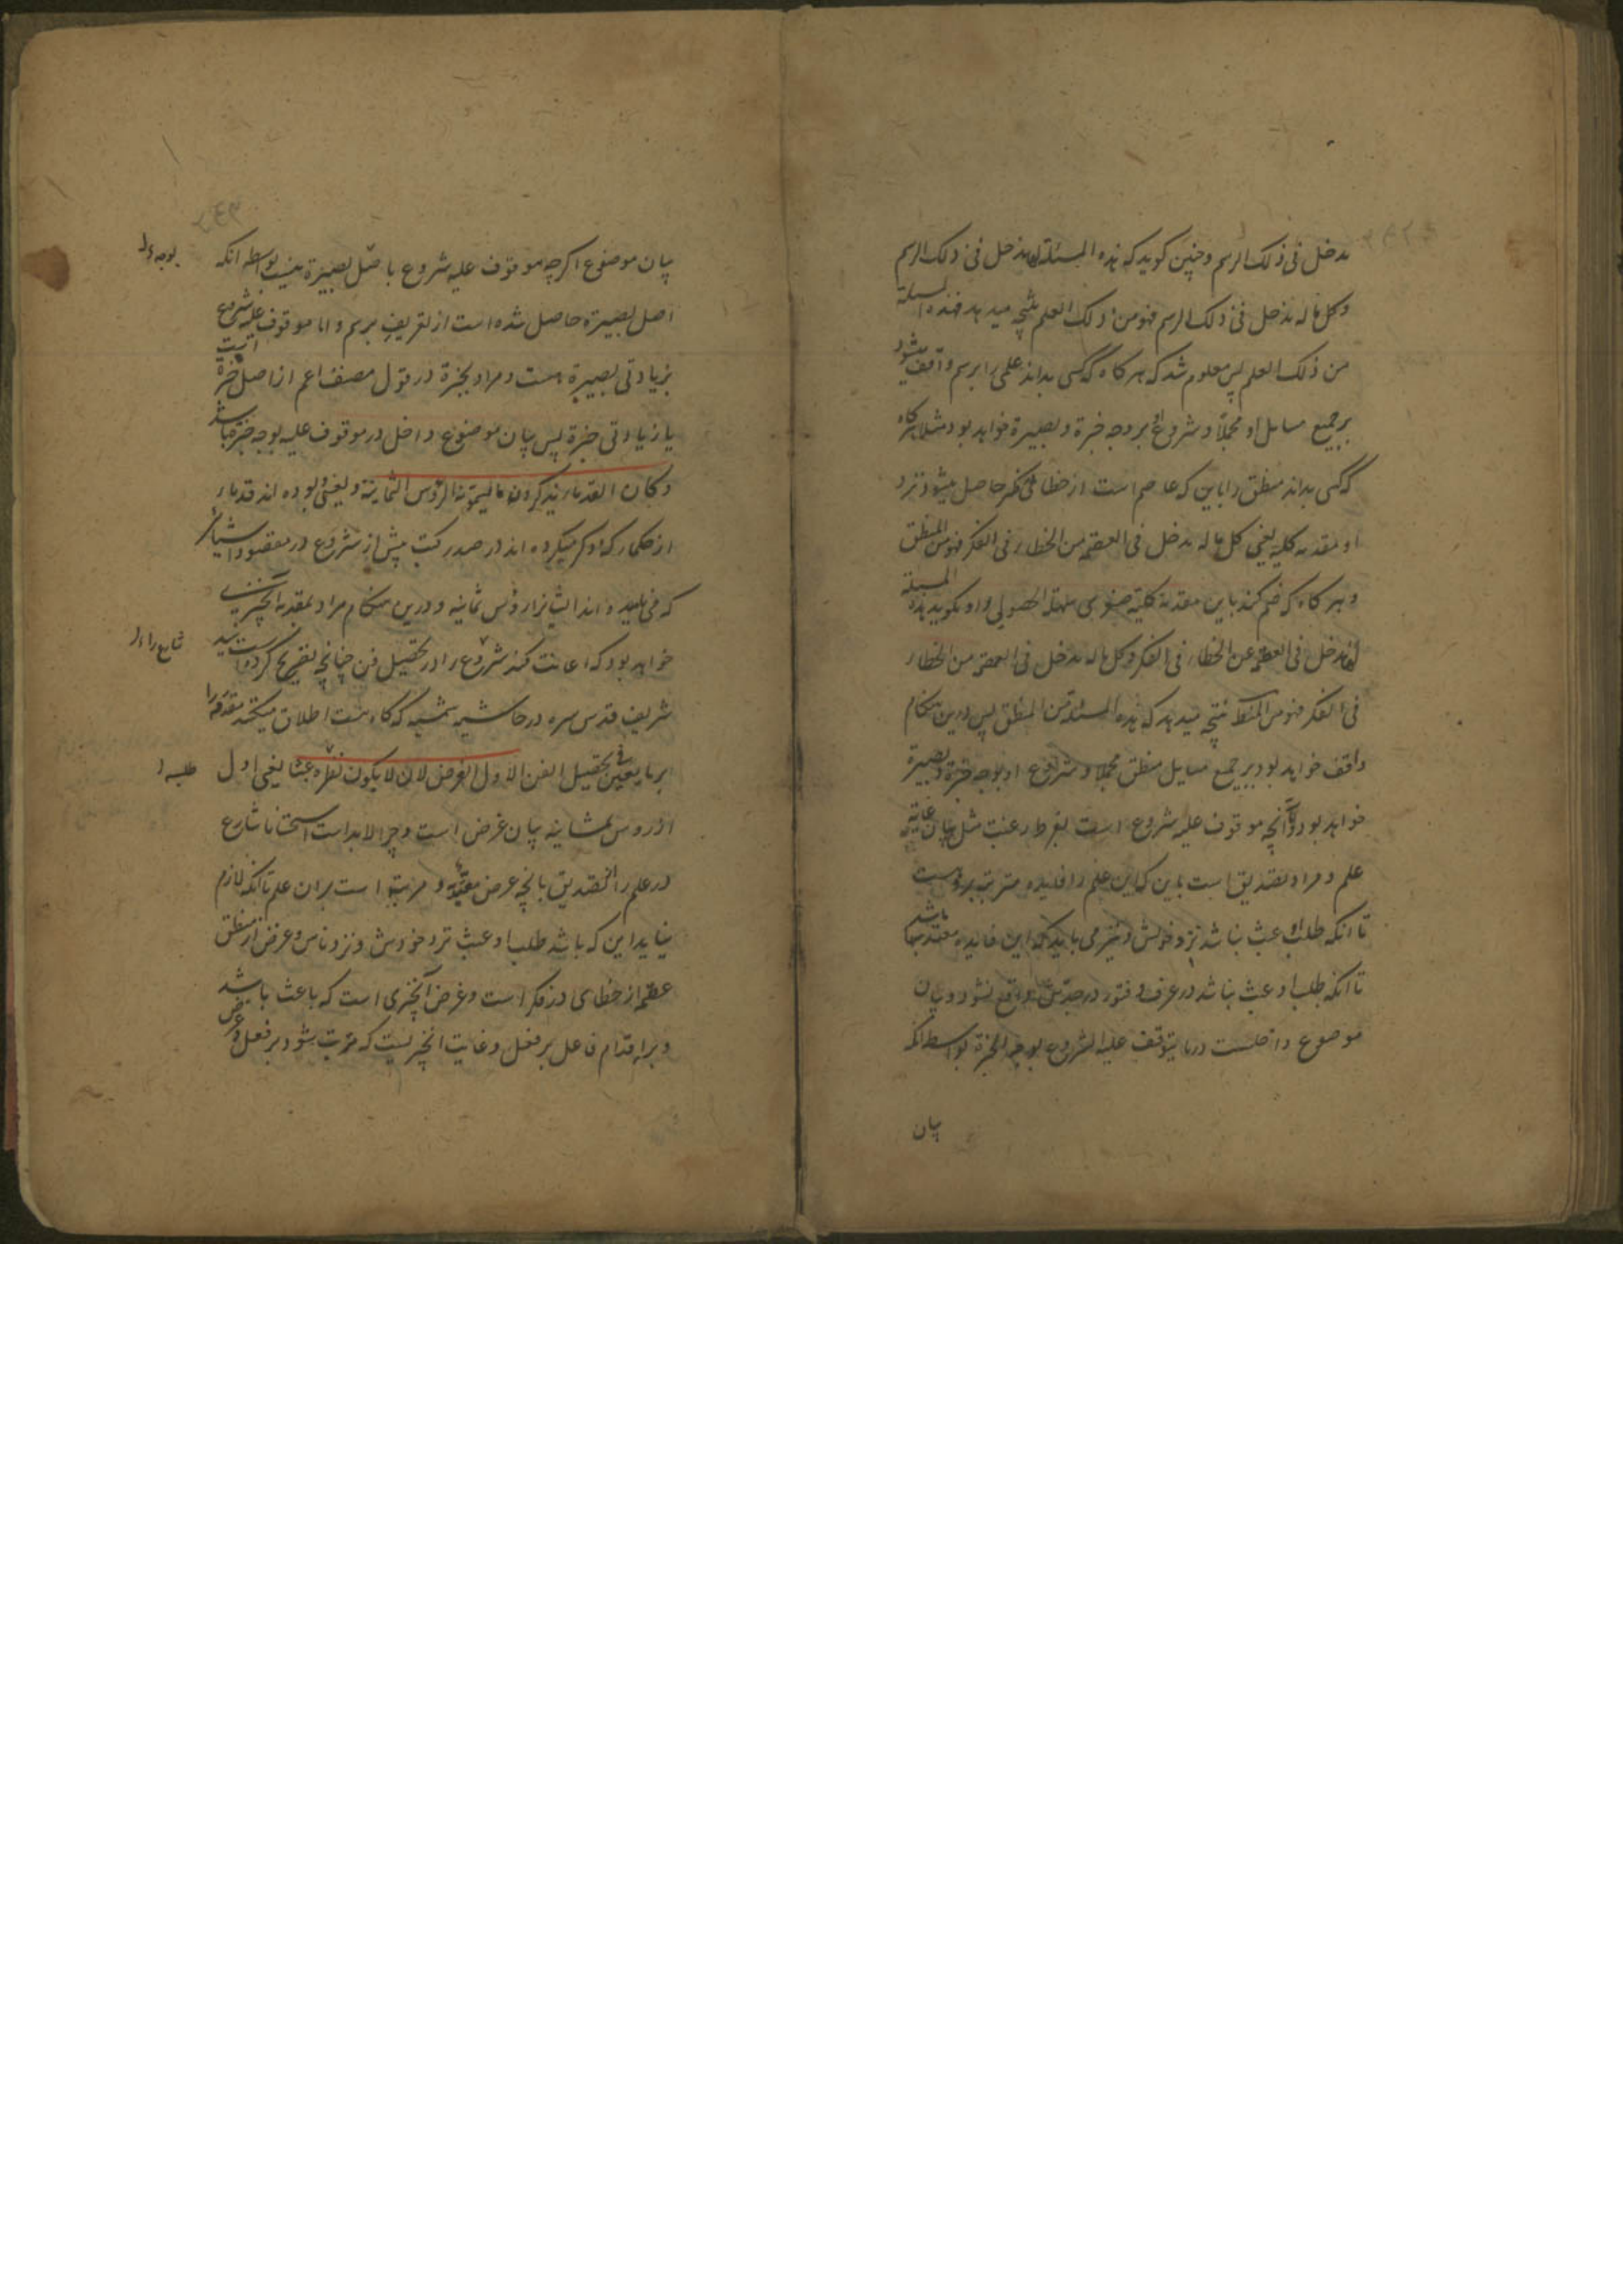 مدخل فی ذلک الرسم و چنین کوید که هذه المسئلة لها مدخل فی ذلک الرسم
و کل ما له مدخل فی ذلک الرسم فهو من ذلک العلم نتیجه میدهد فهذه المسئلة
من ذلک العلم پس معلوم شد که هر کاه که کسی بداند علمی را برسم واقف میشود
بر جمیع مسایل او مجملا و شروع او بر وجه خبرة و بصیرة خواهد بود مثلا هر کاه
که کسی بداند منطق را باین که عاصم است از خطا فی الفکر حاصل میشود نزد
او مقدمه کلیه یعنی کل ما له مدخل فی العصمة من الخطاء فی الفکر فهو من المنطق
و هر کاه که ضم کند باین مقدمه کلیه صغری سهلة الحصولی را و بکوید هذه المسئلة
لها مدخل فی العصمة عن الخطاء فی الفکر و کل ما له مدخل فی العصمة من الخطاء
فی الفکر فهو من المنطق نتیجه میدهد که هذه المسئلة من المنطق پس درین هنکام
واقف خواهد بود بر جمیع مسایل منطق مجملا و شروع او بوجه خبرة و بصیرة
خواهد بود و آنچه موقوف علیه شروع است بفرط رغبت مثل بیان غایة
علم و مراد تصدیق است باین که این علم را فایده مترتب برو هست
تا آنکه طلب او عبث نباشد نزد خودش و نیز می باید که این فایده معتد بها باشد
تا آنکه طلب او عبث نباشد در عرف و فتور در جدش واقع نشود و بیان
موضوع داخلست در ما یتوقف علیه الشروع بوجه الخبرة بواسطه آنکه
بیان
بیان موضوع اکرچه موقوف علیه شروع باصل بصیرة نیست بواسطه انکه
اصل بصیرة حاصل شده است از تعریف برسم و اما موقوف علیه شروع
بزیادتی بصیرة هست و مراد بخبرة در قول مصنف اعم از اصل خبرة است
یا زیادتی خبرة پس بیان موضوع داخل در موقوف علیه بوجه خبرة باشد
و کان القدماء یذکرون ما یسمونه الرؤس الثمانیة و یعنی بوده اند قدماء
از حکما که ذکر میکرده اند در صدر کتب پیش از شروع در مقصود اشیائی
که می نامیده اند آنها را رؤس ثمانیه و درین هنکام مراد بمقدمه آنچیزیست
خواهد بود که اعانت کند شروع را در تحصیل فن چنانچه تصریح کرده است سید
شریف قدس سره در حاشیه شمسیه که کاه هست اطلاق میکنند مقدمه را
بر ما یعین فی تحصیل الفن الاول الغرض لان لا یکون نظره عبثا یعنی اول
از رؤس ثمانیه بیان غرض است و چرا لابد است استحسانا شارع
در علم را از تصدیق بانچه غرض معتد به و مرتبة است بران علم تا آنکه لازم
نیاید این که باشد طلب او عبث نزد خودش و نزد ناس و غرض از منطق
عصمة از خطای در فکر است و غرض آنچیزی است که باعث باشد
و برای اقدام فاعل بر فعل و غایت آنچیزیست که مرتب بشود بر فعل و غرض